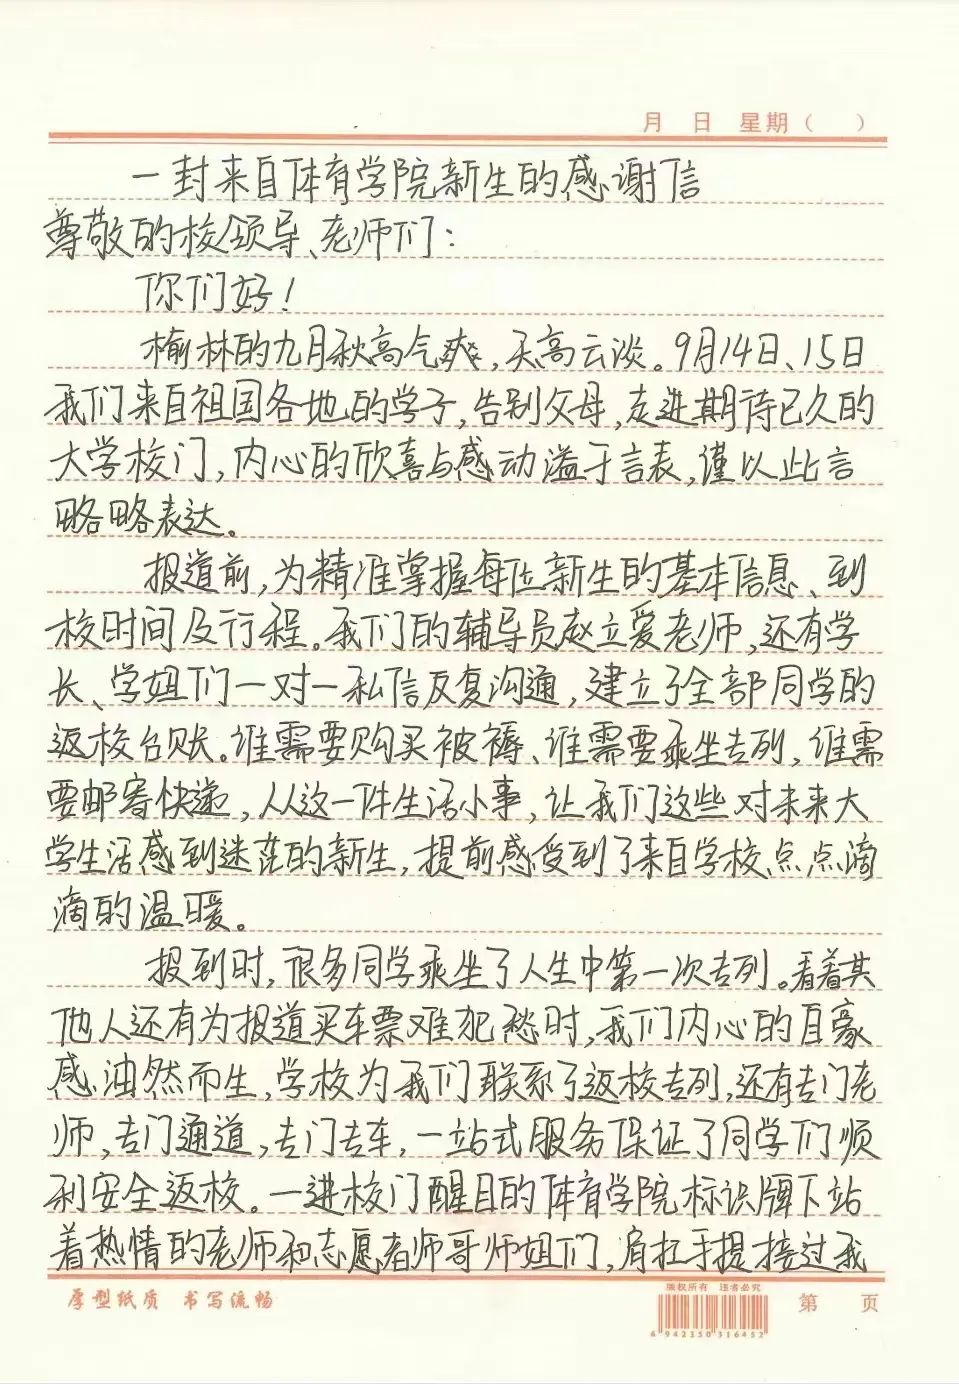 月 日 星期（ ）
一封来自体育学院新生的感谢信
尊敬的校领导、老师们：
你们好！
榆林的九月秋高气爽，天高云淡。9月14日、15日
我们来自祖国各地的学子，告别父母，走进期待已久的
大学校门，内心的欣喜与感动溢于言表，谨以此言
略略表达。
报道前，为精准掌握每位新生的基本信息、到
校时间及行程。我们的辅导员赵立爱老师，还有学
长、学姐们一对一私信反复沟通，建立了全部同学的
返校台账。谁需要购买被褥、谁需要乘坐专列，谁需
要邮寄快递，从这一件件生活小事，让我们这些对未来大
学生活感到迷茫的新生，提前感受到了来自学校点点滴
滴的温暖。
报到时，很多同学乘坐了人生中第一次专列。看着其
他人还有为报道买车票难犯愁时，我们内心的自豪
感油然而生，学校为我们联系了返校专列，还有专门老
师，专门通道，专门专车，一站式服务保证了同学们顺
利安全返校。一进校门醒目的体育学院标识牌下站
着热情的老师和志愿者师哥师姐们，肩扛手提接过我
厚型纸质 书写流畅
版权所有 违者必究
6 942350 316452
第 页